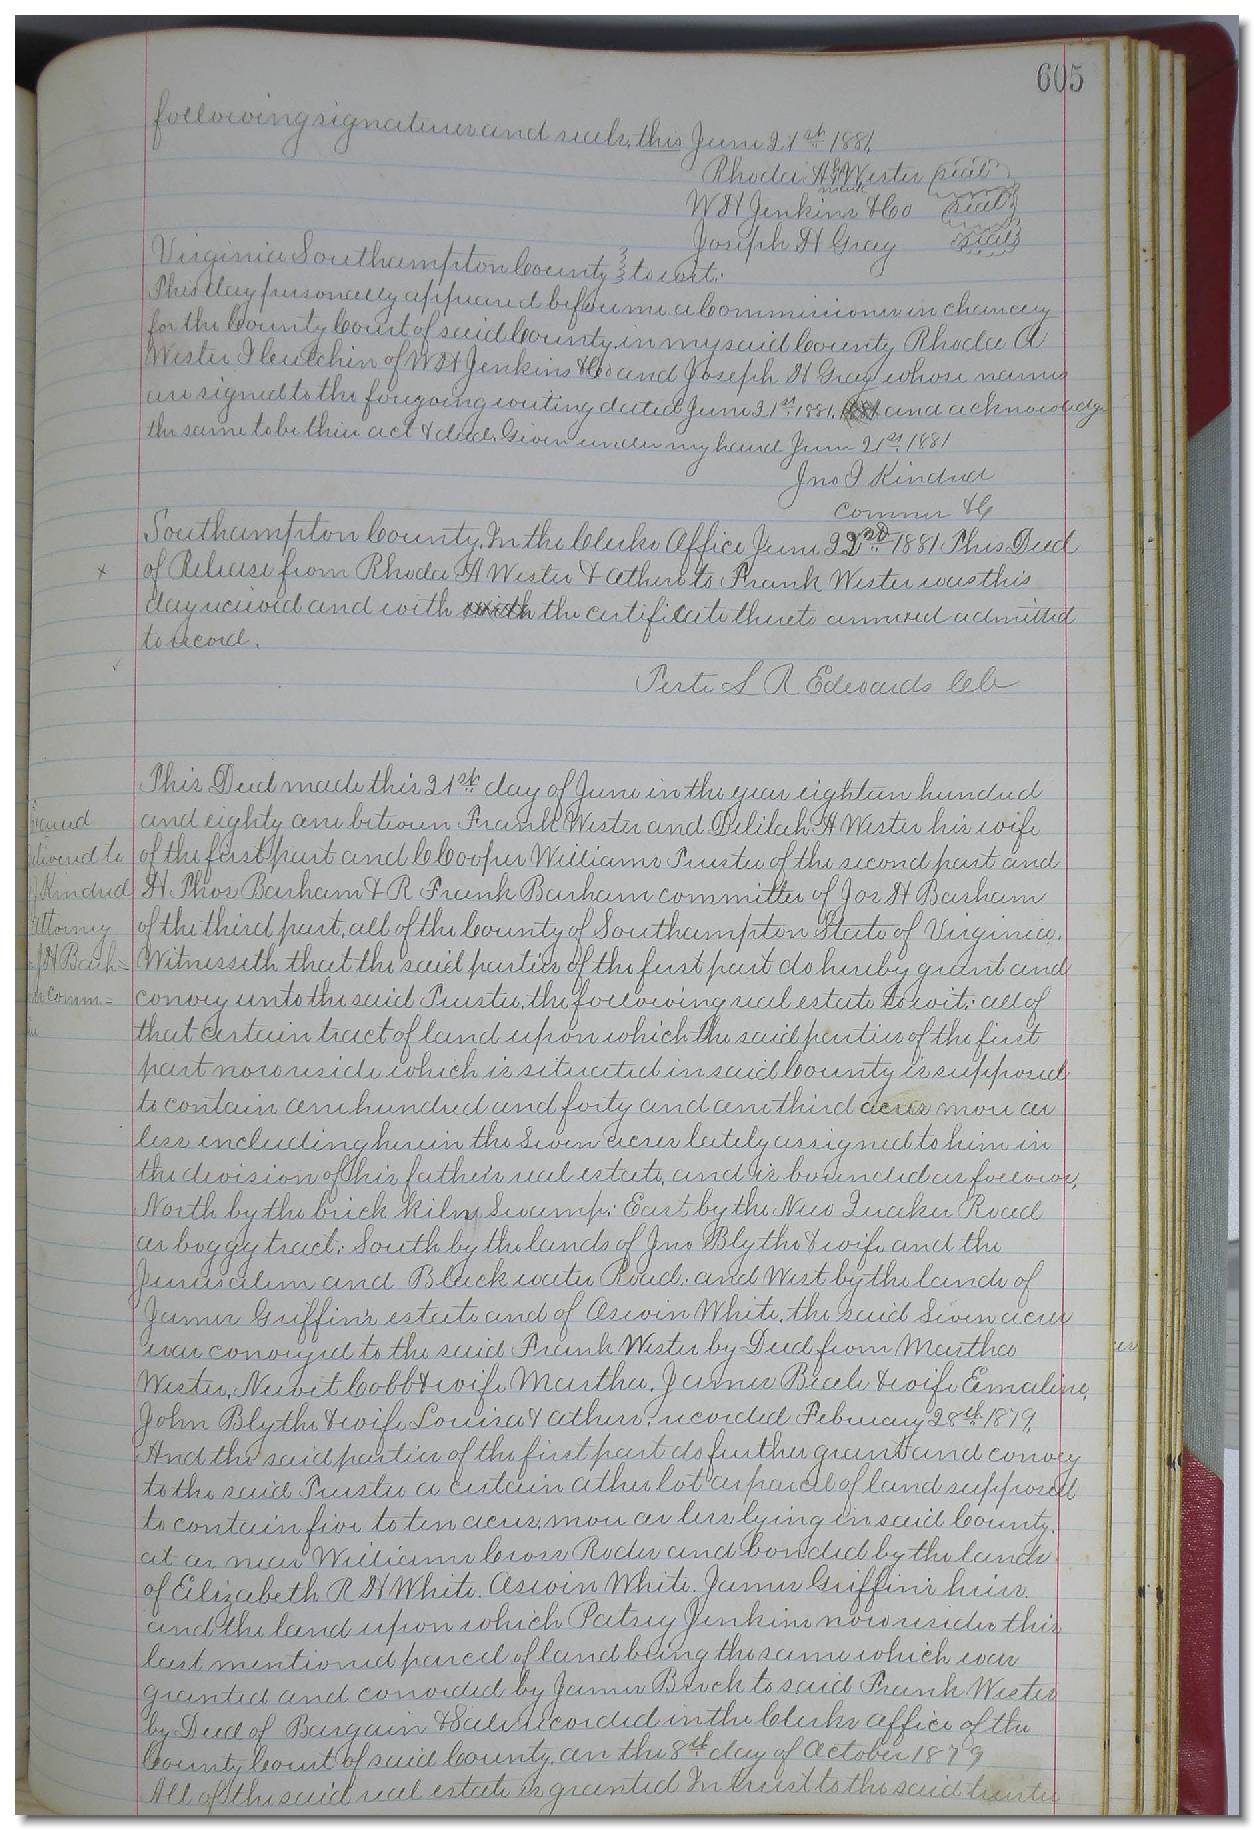 605
following signatures and seals, this June 21st 1881,
Rhoda A Wester seal
mark
W H Jenkins & Co seal
Joseph H Gray seal
Virginia Southampton County to wit:
This day personally appeared before me a Commissioner in chancery
for the County Court of said County, in my said County Rhoda A
Wester of W H Jenkins & Co and Joseph H Gray whose names
are signed to the foregoing writing dated June 21st 1881, and acknowledge
the same to be their act & deed. Given under my hand June 21st 1881
Jno J Kindred
Commr &C
Southampton County, In the Clerks Office June 22nd 1881 This Deed
of Release from Rhoda A Wester & others to Frank Wester was this
x
day received and with with the certificate thereto annexed admitted
to record.
Teste L R Edwards
This Deed made this 21st day of June in the year eighteen hundred
and eighty one between Frank Wester and Delilah A Wester his wife
of the first part and C Cooper Williams Trustee of the second part and
H Thos Barham & R Frank Barham committee of Jos H Barham
of the third part, all of the County of Southampton State of Virginia.
Witnesseth that the said parties of the first part do hereby grant and
convey unto the said Trustee, the following real estate to wit: all of
that certain tract of land upon which the said parties of the first
part now reside which is situated in said County is supposed
to contain one hundred and forty and one third acres more or
less including herein the Seven acres lately assigned to him in
the division of his father's real estate, and is bounded as follows,
North by the brick kiln Swamp: East by the New Quaker Road
or boggy tract: South by the lands of Jno Blythe & wife and the
Jerusalem and Black water Road: and West by the lands of
James Griffin's estate and of Aswin White, the said Seven acres
was conveyed to the said Frank Wester by Deed from Martha
Wester, Newit Cobb & wife Martha, James Beale & wife Emaline,
John Blythe & wife Louisa & others, recorded February 28th 1879,
And the said parties of the first part do further grant and convey
to the said Trustee a certain other lot or parcel of land supposed
to contain five to ten acres, more or less lying in said County,
at or near Williams Cross Rodes and bonded by the lands
of Eilizabeth R H White. Aswin White. James Griffin's heirs
and the land upon which Patsey Jenkins now resides this
last mentioned parcel of land being the same which was
granted and conveded by James Brock to said Frank Wester
by Deed of Bargain & Sale recorded in the Clerks office of the
County Court of said County, on the 8th day of October 1879
All of the said real estate is granted In trust to the said trustee
Kindred
attorney
comm=